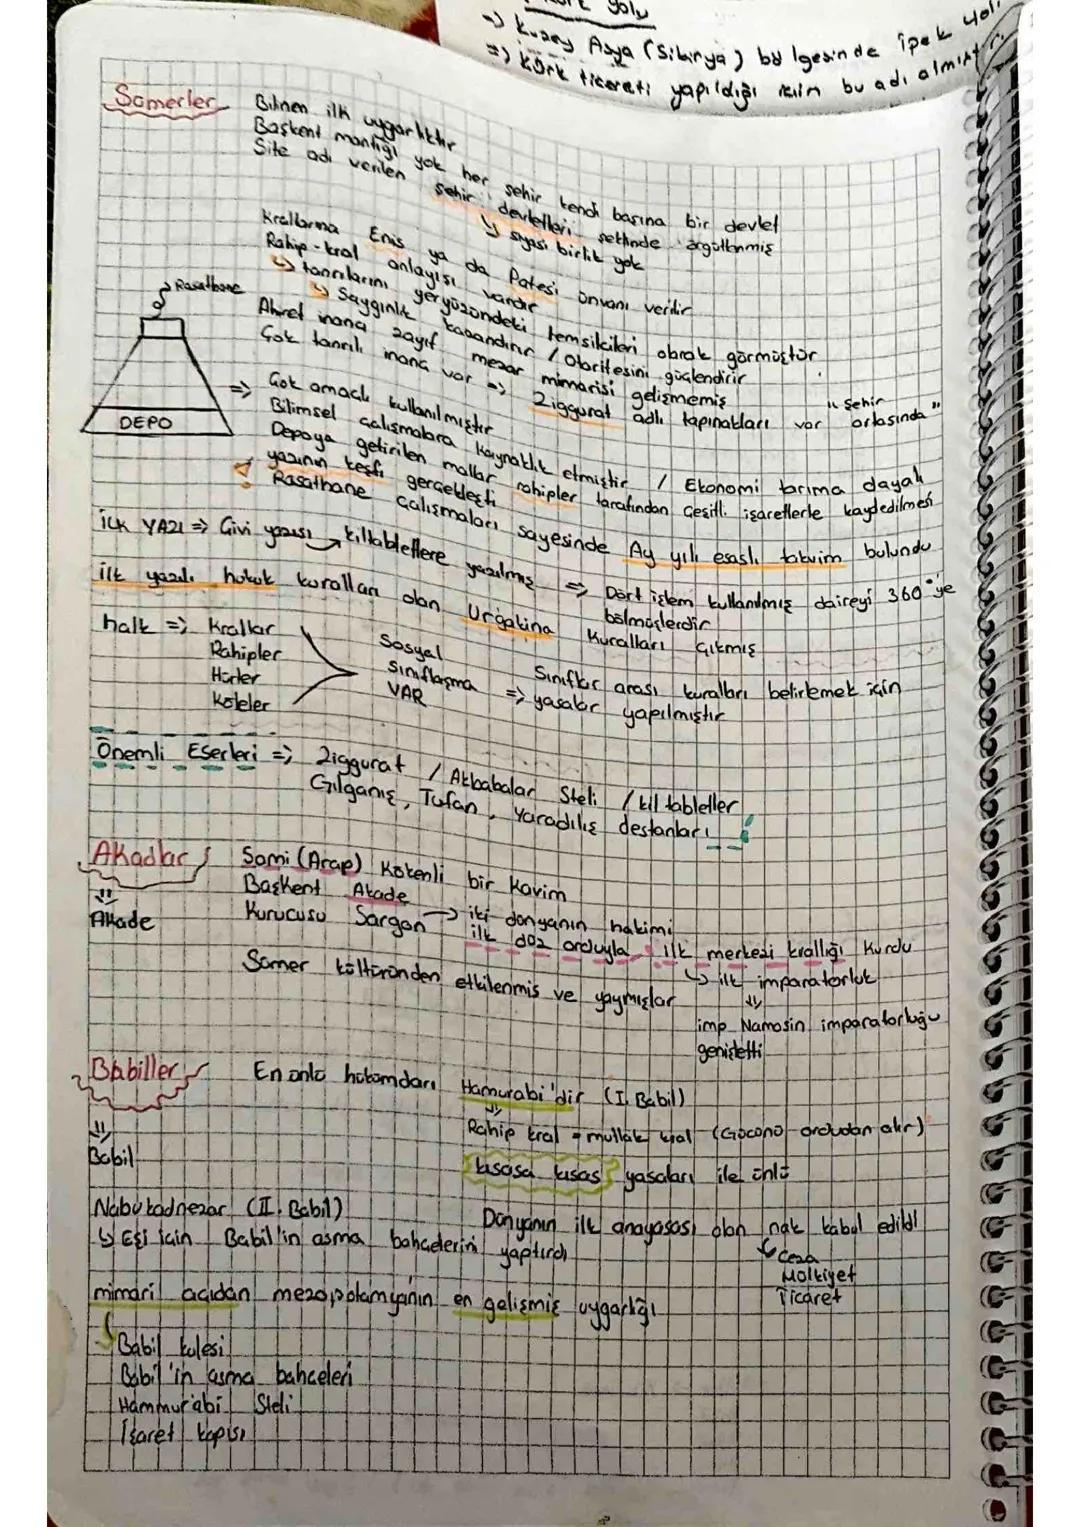 Kürk yolu
=> Kuzey Asya (Sibirya) bölgesinde ipek yolu
=> Kürk ticareti yapıldığı için bu adı almıştır.
Sümerler
Bilinen ilk uygarlıktır
Başkent mantığı yok her şehir kendi başına bir devlet
Site adı verilen şehir devletleri şeklinde örgütlenmiş
↳ siyasi birlik yok
Krallarına Ensi ya da Patesi ünvanı verilir
Rahip-kral anlayışı vardır
↳ tanrılarını yeryüzündeki temsilcileri olarak görmüştür
↳ Saygınlık kazandırır / Otoritesini güçlendirir
Ahiret inancı zayıf mezar mimarisi gelişmemiş
Çok tanrılı inanç var => Ziggurat adlı tapınakları var "şehir ortasında"
Rasathane
DEPO
=> Çok amaçlı kullanılmıştır
Bilimsel çalışmalara kaynaklık etmiştir / Ekonomi tarıma dayalı
Depoya getirilen mallar rahipler tarafından çeşitli işaretlerle kaydedilmesi
yazının keşfi gerçekleşti
Rasathane çalışmaları sayesinde Ay yılı esaslı takvim bulundu
İLK YAZI => Çivi yazısı → kil tabletlere yazılmış => Dört işlem kullanılmış daireyi 360°'ye
bölmüşlerdir
ilk yazılı hukuk kuralları olan Urgakina Kuralları çıkmış
halk => Krallar
Rahipler
Hürler
Köleler
Sosyal
sınıflaşma
VAR
=> Sınıflar arası kuralları belirlemek için
yasalar yapılmıştır
Önemli Eserleri => Ziggurat / Akbabalar Steli / kil tabletler
Gılgamış, Tufan, Yaradılış destanları
Akadlar
Sami (Arap) Kökenli bir Kavim
Başkent Akade
Akade
Kurucusu Sargon → iki dünyanın hakimi
ilk düz orduyla ilk merkezi krallığı Kurdu
↳ ilk imparatorluk
Sümer kültüründen etkilenmiş ve yaymışlar
imp Namosin imparatorluğu
genişletti
Babiller
En ünlü hükümdarı Hamurabi'dir (I. Babil)
Babil
Rahip kral ≠ mutlak kral (Gücünü ordudan alır)
kısasa kısas yasaları ile ünlü
Nabukadnezar (II. Babil)
Dünyanın ilk anayasası olarak kabul edildi
↳ Eşi için Babil'in asma bahçelerini yaptırdı
Ceza
Mülkiyet
Ticaret
mimari açıdan mezopotamyanın en gelişmiş uygarlığı
Babil kulesi
Babil'in asma bahçeleri
Hammurabi Steli
İşaret kapısı